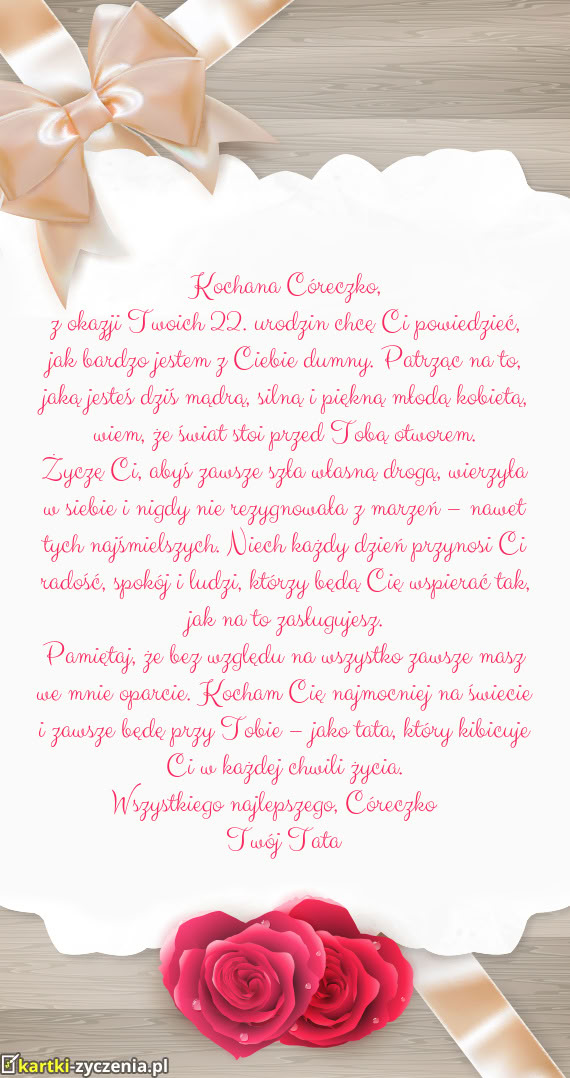 Kochana Córeczko,
z okazji Twoich 22. urodzin chcę Ci powiedzieć,
jak bardzo jestem z Ciebie dumny. Patrząc na to,
jaką jesteś dziś mądrą, silną i piękną młodą kobietą,
wiem, że świat stoi przed Tobą otworem.
Życzę Ci, abyś zawsze szła własną drogą, wierzyła
w siebie i nigdy nie rezygnowała z marzeń – nawet
tych najśmielszych. Niech każdy dzień przynosi Ci
radość, spokój i ludzi, którzy będą Cię wspierać tak,
jak na to zasługujesz.
Pamiętaj, że bez względu na wszystko zawsze masz
we mnie oparcie. Kocham Cię najmocniej na świecie
i zawsze będę przy Tobie – jako tata, który kibicuje
Ci w każdej chwili życia.
Wszystkiego najlepszego, Córeczko
Twój Tata
kartki-zyczenia.pl